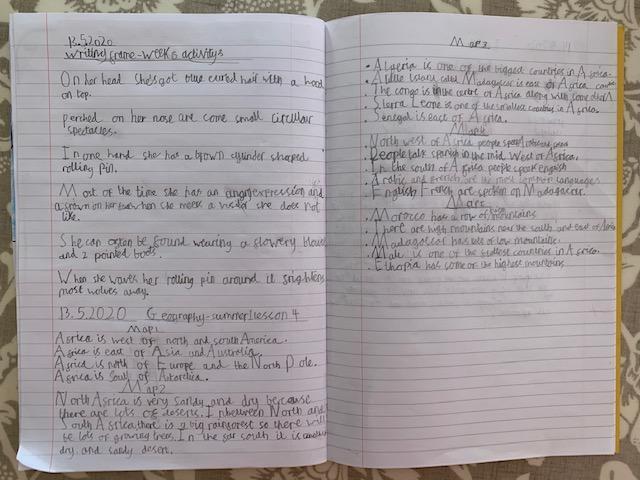 13.5.2020
Writing frame-week 6 activity 3
On her head she's got blue cured hair with a hood
on top.
perched on her nose are come small circular
spectacles.
In one hand she has a brown cylinder shaped
rolling pin.
Most of the time she has an angry expression and
a frown on her face when she meets a visiter she does not
like.
She can ofton be found wearing a flowery blouse
and 2 pointed boots.
When she waves her rolling pin around it frightens
most wolves away.
13.5.2020 Geography-summer lesson 4
Map1
Africa is west of north and south America.
Africa is east of Asia and Australia.
Africa is north of Europe and the North Pole.
Africa is South of Antarctica.
Map2
North Africa is very sandy and dry because
there are lots of deserts. Inbetween North and
South Africa, there is a big rainforest so there will
be lots of growing trees. In the far south it is another
dry and sandy desert.
Map3
• Algeria is one of the biggest countries in Africa.
• A little island called Madagascar is east of Africa.
• The congo is in the centre of Africa along with some others.
• Sierra Leone is one of the smallest countries in Africa.
• Senegal is east of Africa.
Map4
• North west of Africa people speak
• People talk spanish in the mid West of Africa.
• In the south of Africa people speak english
• Arabic and french are the most common languages.
• English French are spoken on Madagascar.
Map5
• Morocco has a row of high mountains.
• There are high mountains near the south and east of Africa
• Madagascar has lots of low mountains.
• Mali is one of the flattest countries in Africa.
• Ethopia has some of the highest mountains